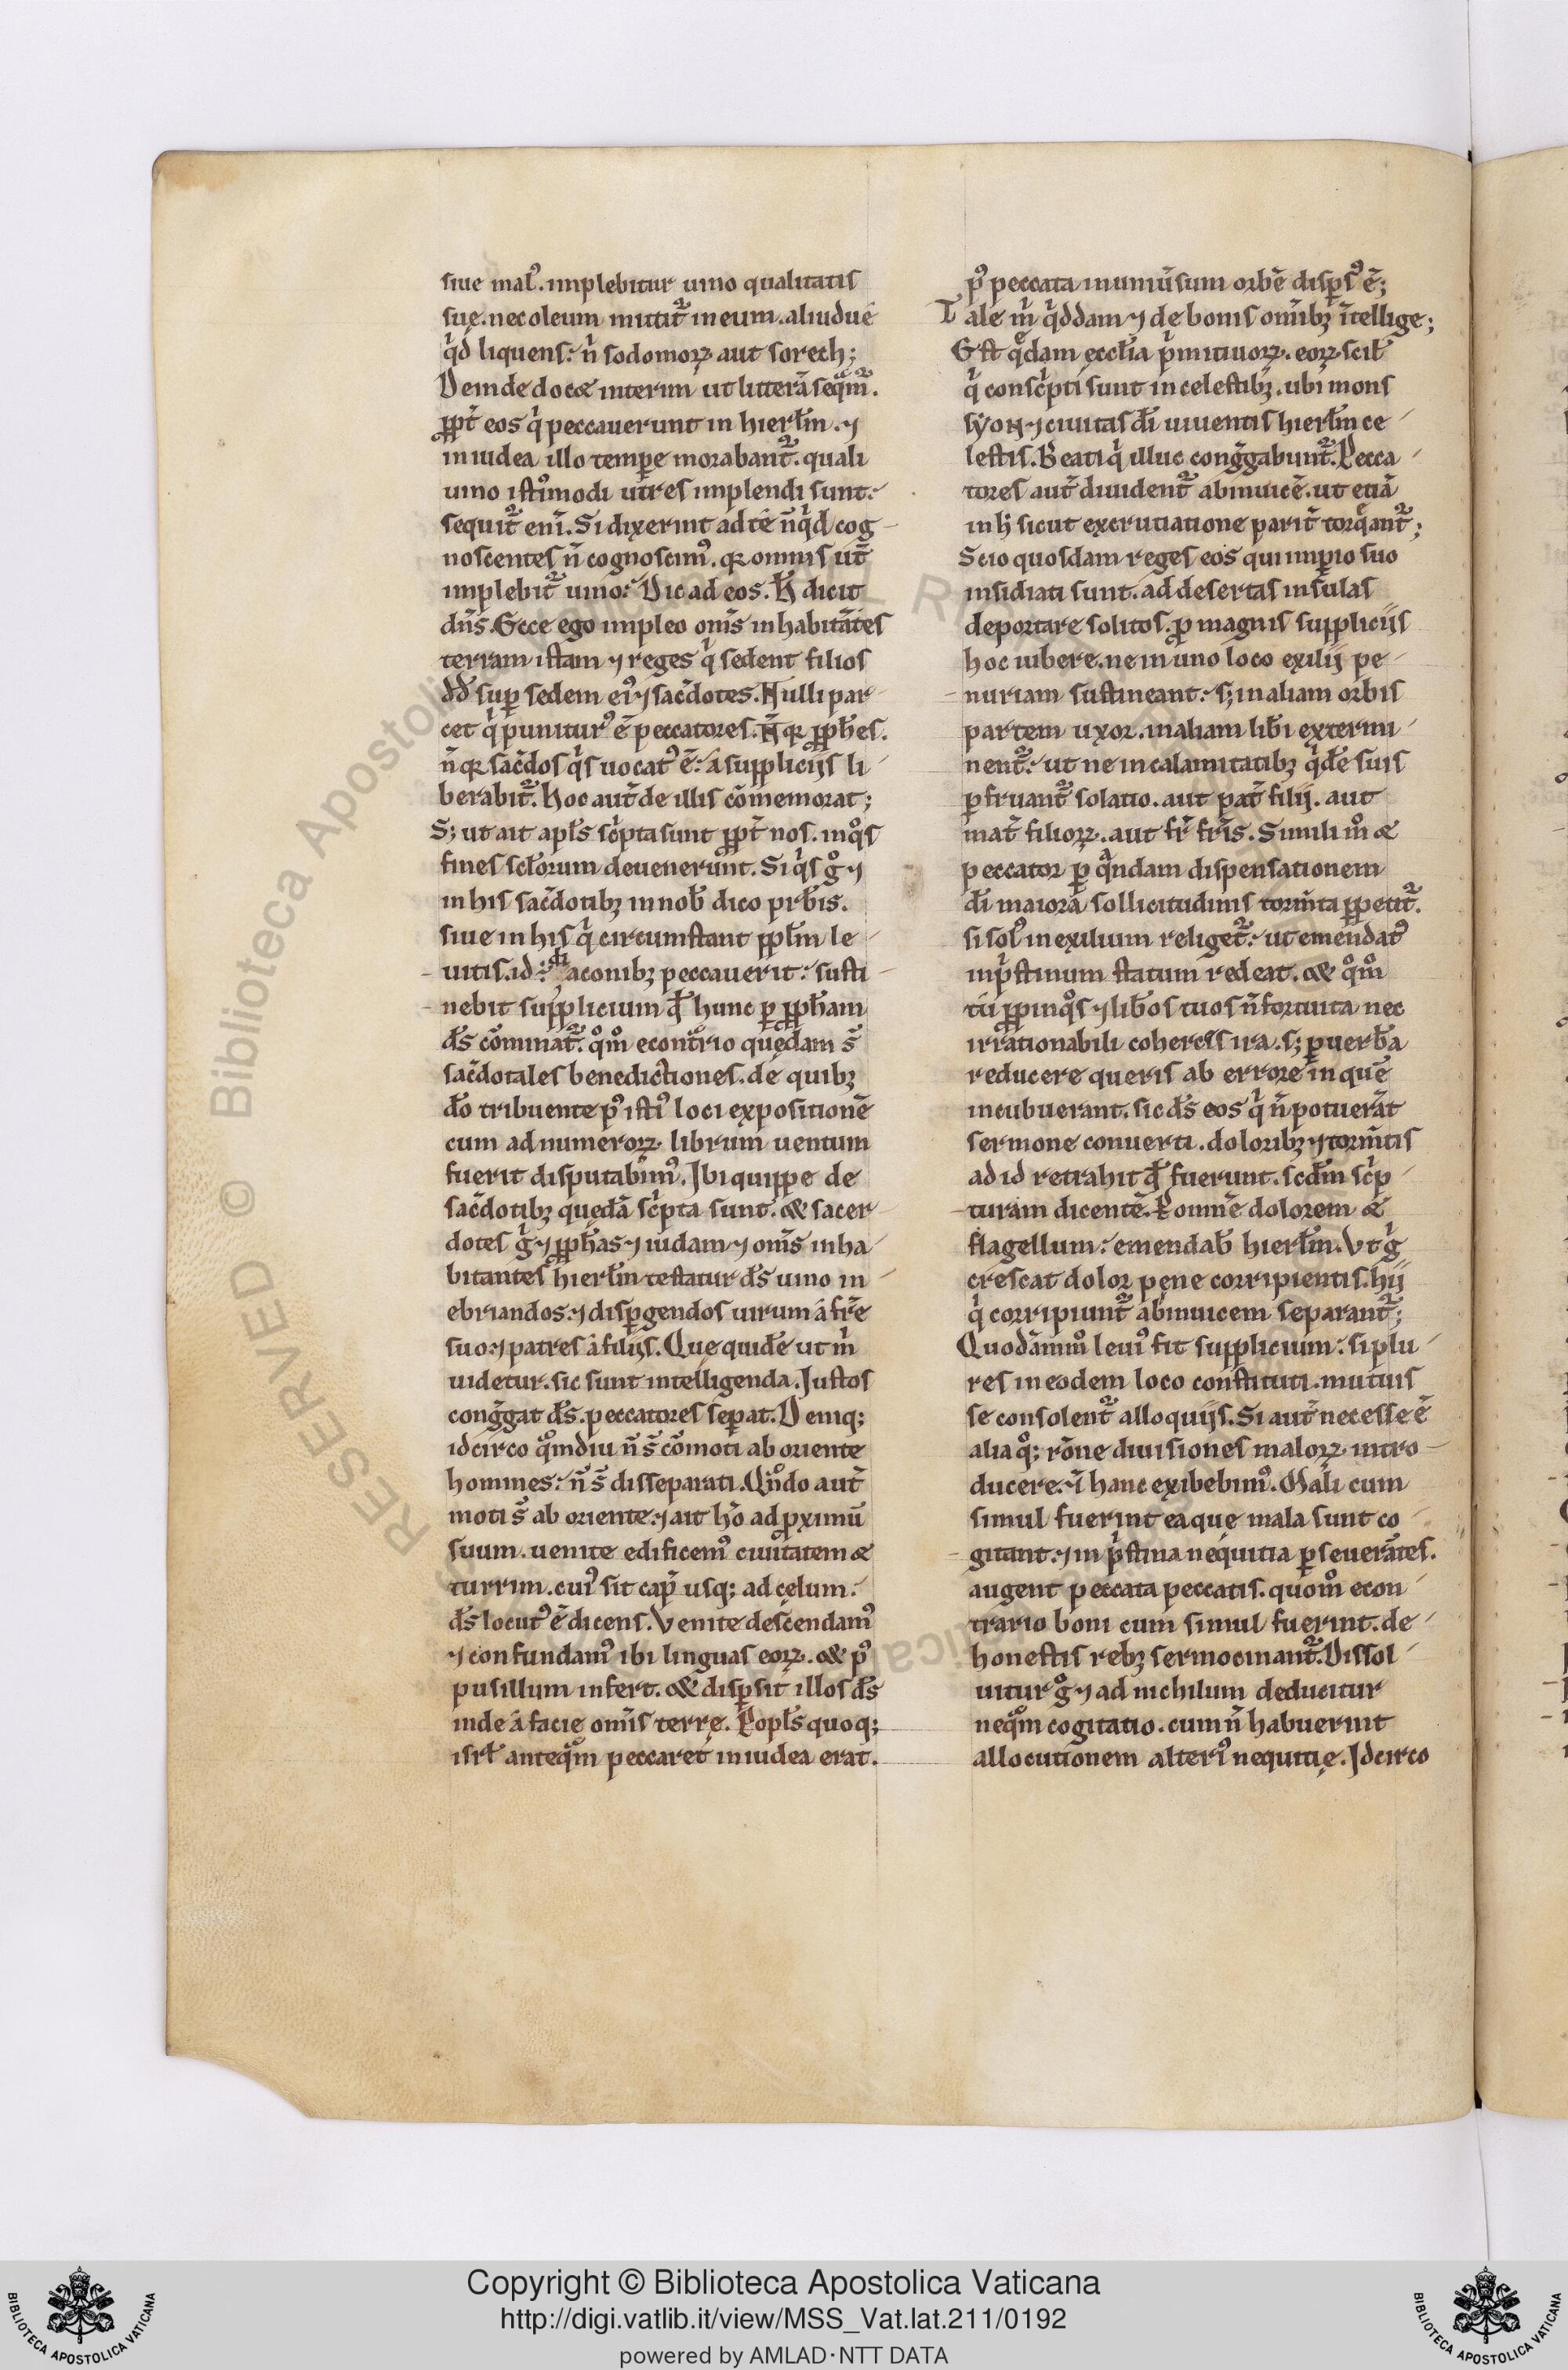 siue malꝰ. implebitur uino qualitatis
suę. nec oleum mittit᷑ in eum. aliud ue
qͥd liquens: n̄ sodomoꝝ aut sorech;
Deinde docet interim ut litterā seqͣm᷑.
ꝓpt̄ eos qͥ peccauerunt in hierl̄m. ⁊
in iudea illo tempꝑe morabant᷑. quali
uino istiꝰmodi utres implendi sunt.
sequit᷑ enī. Si dixerint ad te nūqͥd cog-
noscentes n̄ cognoscimꝰ. qꝛ omnis ut̄
implebit᷑ uino: Dic ad eos. H̄ dicit
dn̄s. Ecce ego impleo om̄s inhabitātes
terram istam ⁊ reges qͥ sedent filios
dd̄ suꝑ sedem eiꝰ ⁊ sac̄dotes. Nulli par-
cet qͥ puniturꝰ ē peccatores. Nꝙꝫ ꝓph̄es.
n̄qꝫ sac̄dos qͥs uocatꝰ ē: a supplicijs li-
berabit᷑. Hoc aut̄ de illis cōmemorat;
Sꝫ ut ait apl̄s scͥpta sunt ꝓpt̄ nos. in qͦs
fines scl̄orum deuenerunt. Si qͥs gͦ ⁊
in his sac̄dotibꝫ in nob̄ dico prb̄is.
siue in his qͥ circumstant ppl̄m le-
uitis. id ÷ diaconibꝫ peccauerit: susti-
nebit supplicium qd̄ hunc ꝑ ꝓph̄am
ds̄ cōminat᷑. qͦm̄ econt̄rio quędam s̄
sac̄dotales benedictiones. de quibꝫ
dō tribuente pꝰ istiꝰ loci expositionē
cum ad numeroꝝ librum uentum
fuerit disputabimꝰ. Ibi quippe de
sac̄dotibꝫ quędā scͥpta sunt. & sacer-
dotes gͥ ⁊ ꝓph̄as ⁊ iudam ⁊ om̄s inha-
bitantes hierl̄m testatur ds̄ uino in-
ebriandos: ⁊ disꝑgendos uirum á fr̄e
suo: ⁊ patres á filijs. Que quidē ut m̄
uidetur. sic sunt intelligenda. Iustos
cong̃gat ds̄. peccatores seꝑat. Deniqꝫ
idcirco qͣmdiu n̄ s̄ cōmoti ab oriente
homines: n̄ s̄ disseparati. Qn̄do aut̄
moti s̄ ab oriente: ⁊ ait hō ad ꝓximū
suum. uenite edificemꝰ ciuitatem et
turrim. cuiꝰ sit cap̄ usqꝫ ad cęlum:
ds̄ locutꝰ ē dicens. Venite descendamꝰ
⁊ confundamꝰ ibi linguas eoꝝ. & pꝰ
pusillum infert. & disꝑsit illos ds̄
inde á facie om̄is terrę. Popl̄s quoqꝫ
isrl̄ anteqͣm peccaret in iudea erat.
pꝰ peccata in uniūsum orbē disꝑsꝰ ē;
Tale m̄ qͥddam ⁊ de bonis om̄ibꝫ ītellige;
Est qͣdam eccl̄ia pͥmitiuoꝝ. eoꝝ scil̄
qͥ conscͥpti sunt in celestibꝫ. ubi mons
syon ⁊ ciuitas dī uiuentis hierl̄m ce-
lestis. Beati qͥ illuc cong̃gabunt᷑. Pecca-
tores aut̄ diuident᷑ ab inuicē. ut etiā
in h̄ sicut excrutiatione parit̄ torqͣant᷑;
Scio quosdam reges eos qui imꝑio suo
insidiati sunt. ad desertas insulas
deportare solitos. ꝓ magnis supplicijs
hoc iubere. ne in uno loco exilij pe-
nuriam sustineant: sꝫ in aliam orbis
partem uxor. in aliam lib̄i extermi-
nent᷑: ut ne in calamitatibꝫ qͥdē suis
ꝑfruant᷑ solatio. aut pat̄ filij. aut
mat̄ filioꝝ. aut fr̄ fr̄is. Simili mͦ et
peccator ꝑ qͣndam dispensationem
dī maiora sollicitudinis torm̄ta ꝑpetit᷑.
si solꝰ in exilium religet᷑: ut emendatꝰ
in pͥstinum statum redeat. & qͦmͦ
tu ꝓpinqͦs ⁊ lib̄os tuos n̄ fortuita nec
irrationabili coherces ira. sꝫ ꝑ uerb̄a
reducere queris ab errore in quē
incubuerant. sic ds̄ eos qͥ n̄ potuerāt
sermone conuerti. doloribꝫ ⁊ torm̄tis
ad id retrahit qd̄ fuerunt. scd̄m scͥp-
turam dicentē. P omnē dolorem et
flagellum: emendab̄ hierl̄m. Vt gͥ
crescat dolor pęne corripientis. hij
qͥ corripiunt᷑ ab inuicem separant᷑;
Quodāmmͦ leuiꝰ fit supplicium: si plu-
res in eodem loco constituti. mutuis
se consolent᷑ alloquijs. Si aut̄ necesse ē
alia qͦꝫ rōne diuisiones maloꝝ intro-
ducere. ⁊ hanc exibebimꝰ. Mali cum
simul fuerint ea que mala sunt co-
gitant. ⁊ in pͥstina nequitia ꝑseuerātes.
augent peccata peccatis. quomͦ econ-
trario boni cum simul fuerint. de
honestis rebꝫ sermocinant᷑. Dissol-
uitur gͦ ⁊ ad nichilum deducitur
neqͣm cogitatio. cum n̄ habuerint
allocutionem alteriꝰ nequitię. Idcirco
RESERVED © Biblioteca Apostolica Vaticana
Copyright © Biblioteca Apostolica Vaticana
http://digi.vatlib.it/view/MSS_Vat.lat.211/0192
powered by AMLAD·NTT DATA
BIBLIOTECA APOSTOLICA VATICANA
BIBLIOTECA APOSTOLICA VATICANA